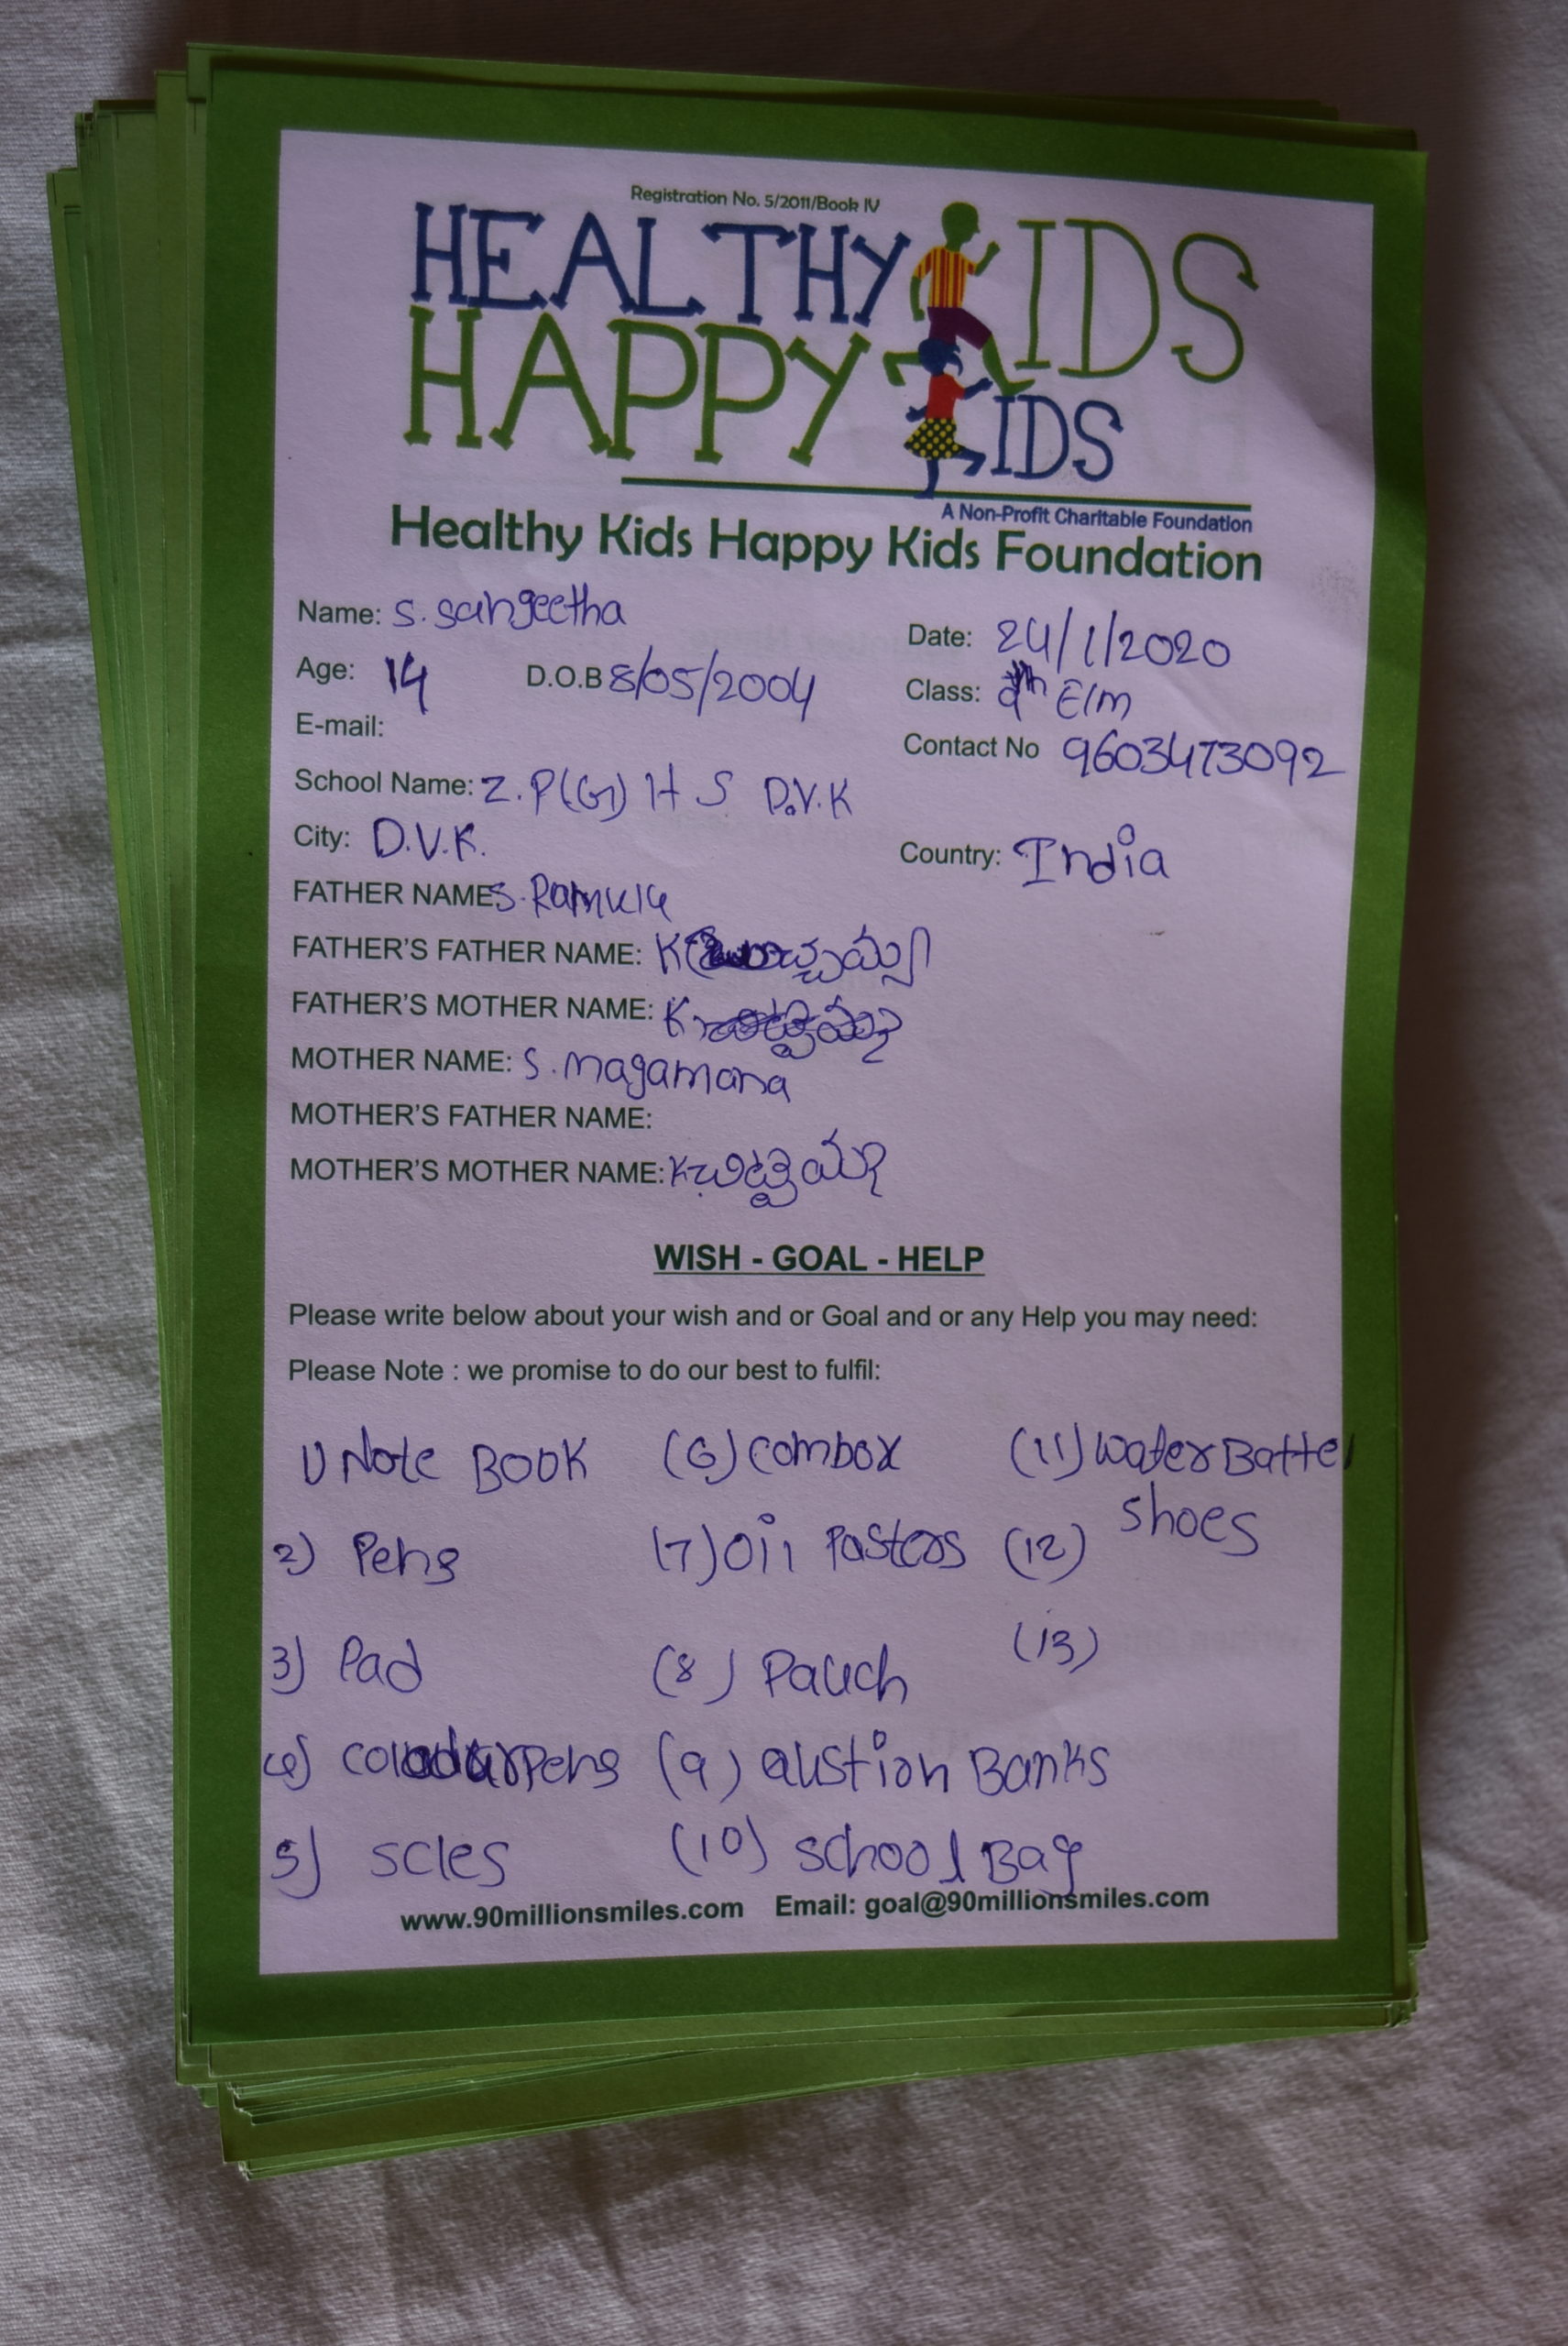 Registration No. 5/2011/Book IV
HEALTHY KIDS
HAPPY KIDS
A Non-Profit Charitable Foundation
Healthy Kids Happy Kids Foundation
Name: S. Sangeetha
Date: 24/1/2020
Age: 14 D.O.B 8/05/2004
Class: 9th E/m
E-mail:
Contact No 9603473092
School Name: Z. P(G) H S D.V.K
City: D.V.K.
Country: India
FATHER NAME: S. Ramula
FATHER'S FATHER NAME: K
FATHER'S MOTHER NAME: K
MOTHER NAME: S. magamana
MOTHER'S FATHER NAME:
MOTHER'S MOTHER NAME: K చిట్టెమ్మ
WISH - GOAL - HELP
Please write below about your wish and or Goal and or any Help you may need:
Please Note : we promise to do our best to fulfil:
1) Note BOOK (6) combox (11) water Battel
2) Pens (7) Oil Pasters (12) shoes
3) Pad (8) Pauch (13)
4) Pens (9) qustion Banks
5) scles (10) school Bag
www.90millionsmiles.com Email: goal@90millionsmiles.com